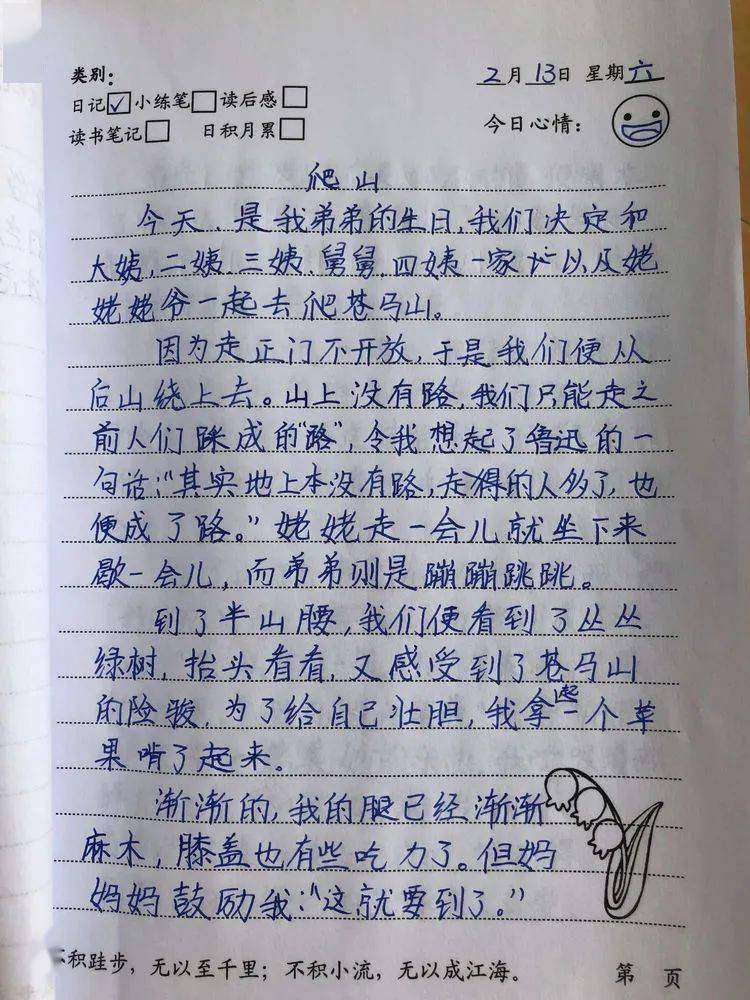 类别：
2月13日 星期六
日记☑小练笔□读后感□
读书笔记□ 日积月累□
今日心情：
爬山
今天、是我弟弟的生日，我们决定和
大姨，二姨、三姨、舅舅、四姨一家以及姥
姥姥爷一起去爬苍马山。
因为走正门不开放，于是我们便从
后山绕上去。山上没有路，我们只能走之
前人们踩成的“路”，令我想起了鲁迅的一
句话：“其实地上本没有路，走得的人多了，也
便成了路。”姥姥走一会儿就坐下来
歇一会儿，而弟弟则是蹦蹦跳跳。
到了半山腰，我们便看到了丛丛
绿树，抬头看看，又感受到了苍马山
的险骏，为了给自己壮胆，我拿起一个苹
果啃了起来。
渐渐的，我的腿已经渐渐
麻木，膝盖也有些吃力了。但妈
妈妈鼓励我：“这就要到了。”
不积跬步，无以至千里；不积小流，无以成江海。
第 页